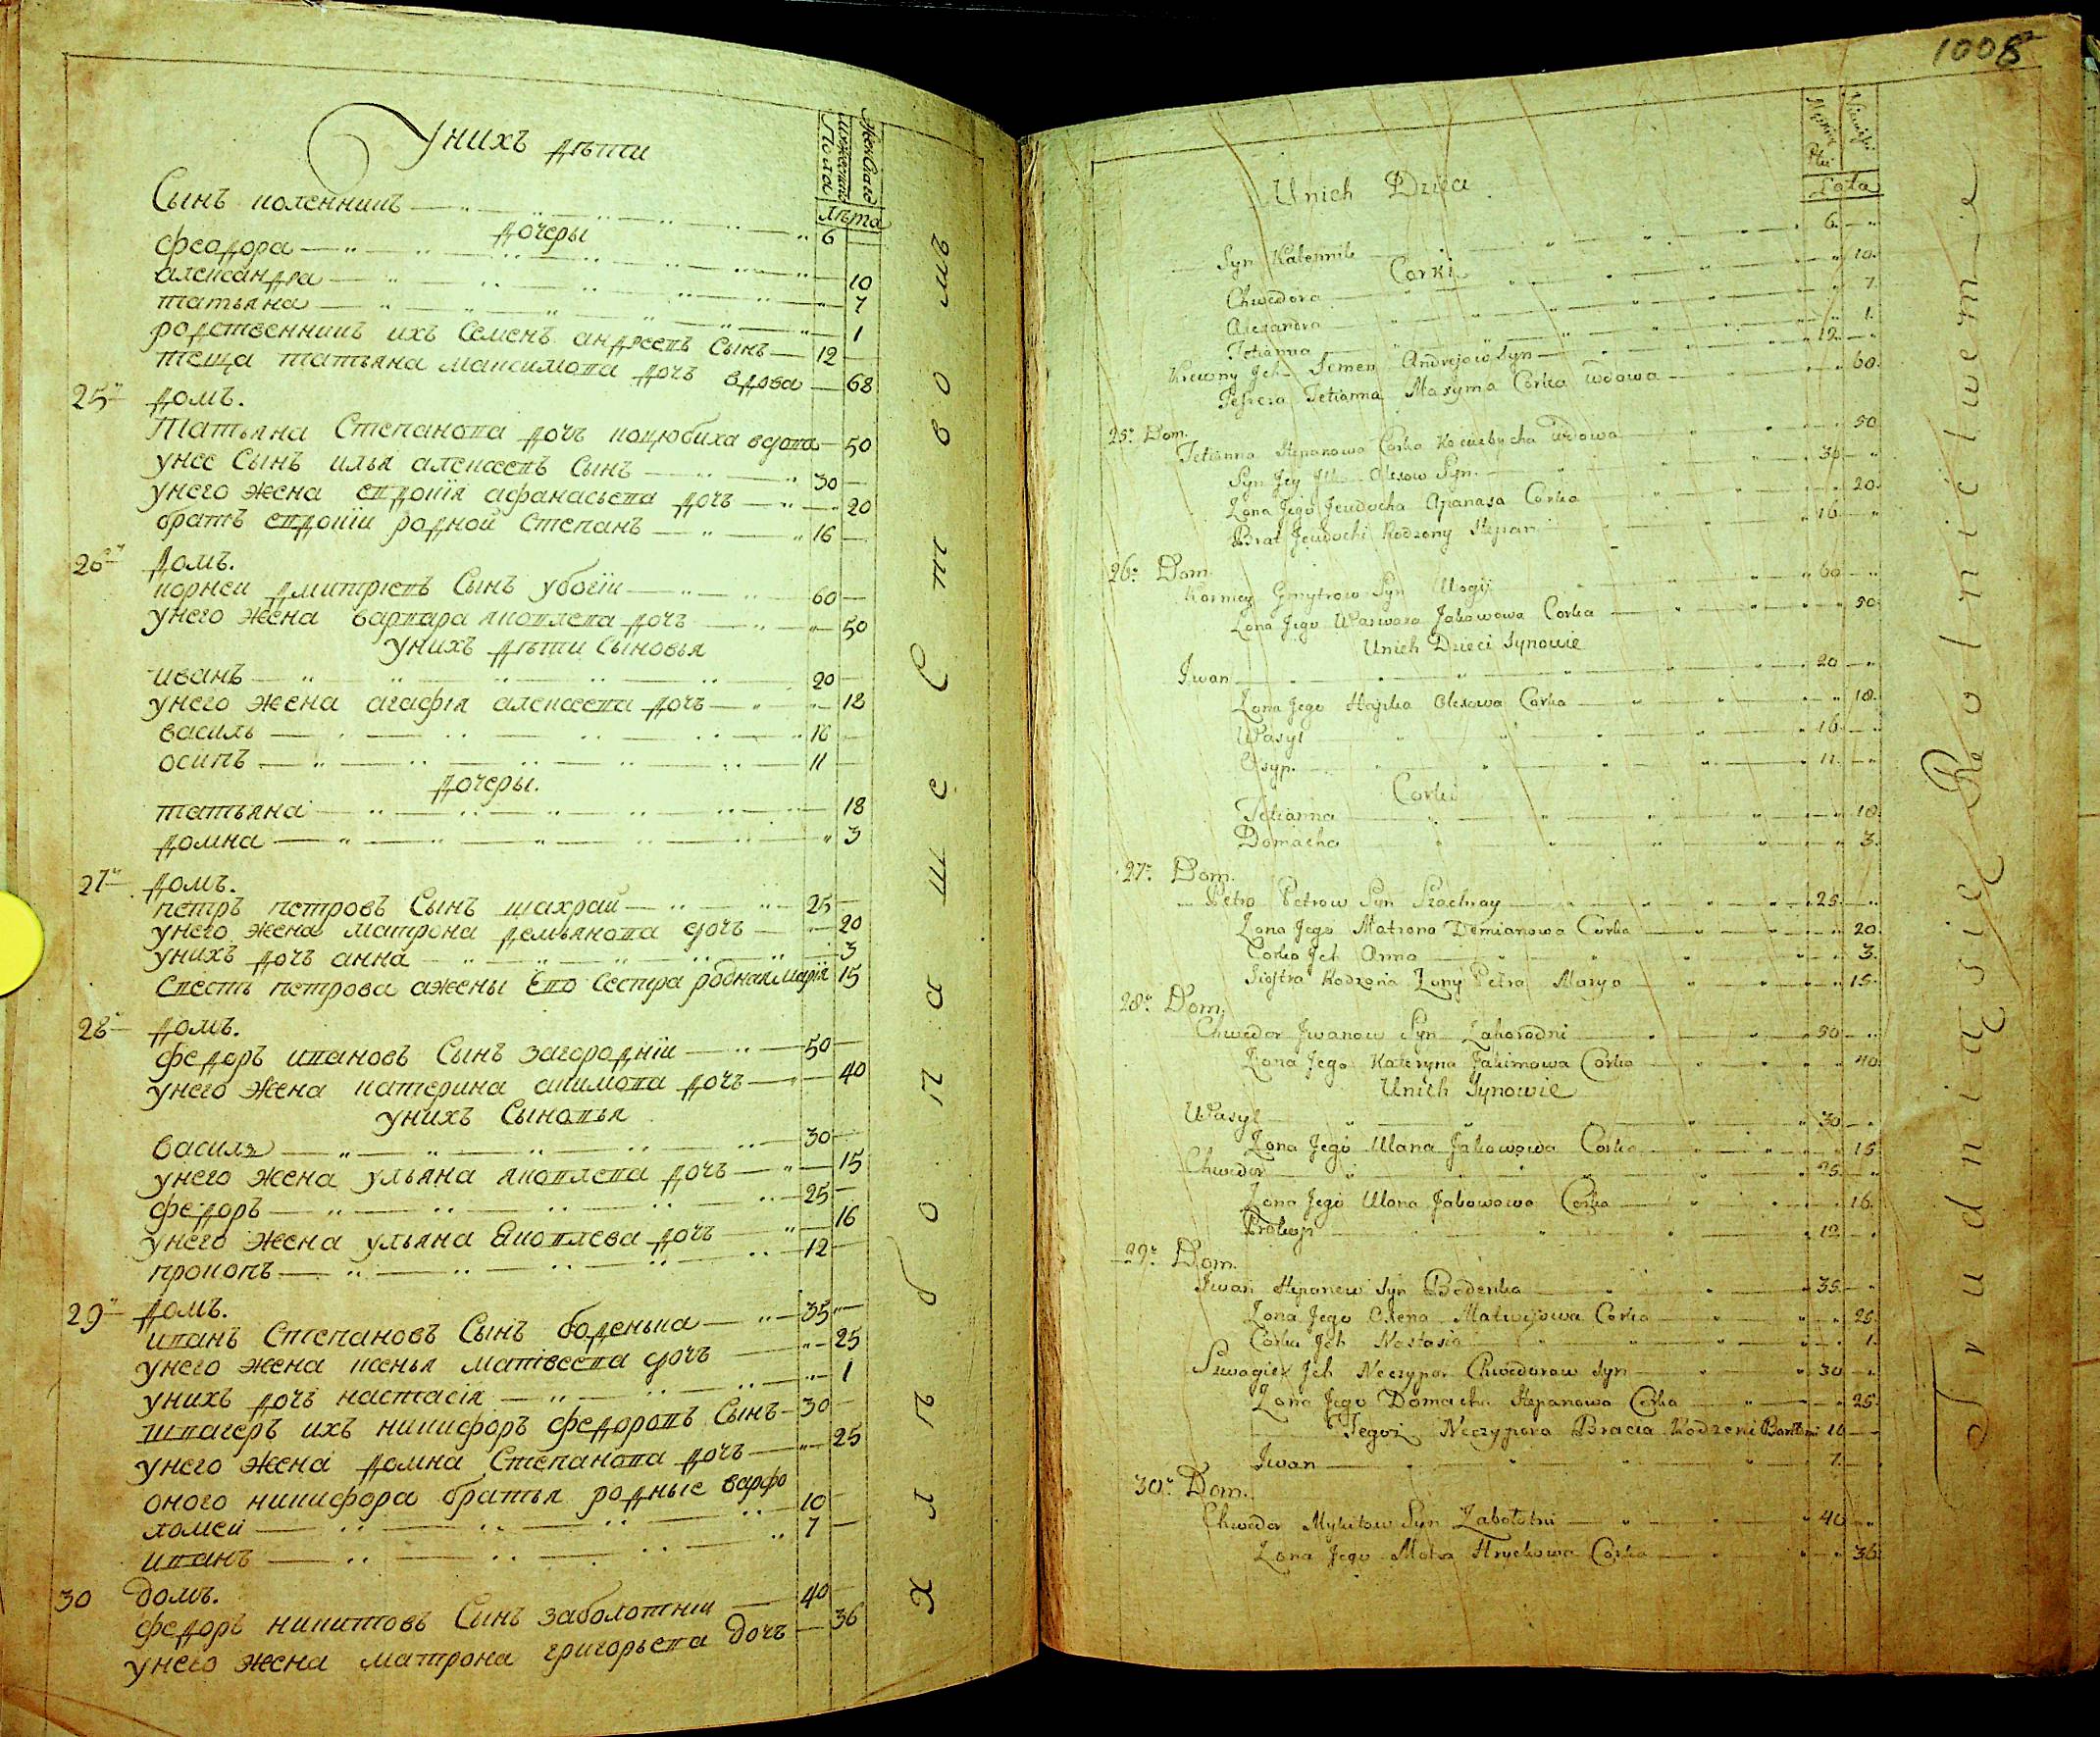 Унихъ дѣти
Женскаго
Мужескаго
Пола
лѣта
Сынъ каленникъ 6
дочеры
феодора 10
александра 7
татьяна 1
родственникъ ихъ Семенъ андреевъ Сынъ 12
теща татьяна максимова дочъ вдова 68
25 домъ.
Татьяна Степанова дочъ коцюбиха вдова 50
унее Сынъ илья алексеевъ Сынъ 30
унего жена евдокія афанасьева дочъ 20
братъ евдокіи родной Степанъ 16
26 домъ.
корней дмитріевъ Сынъ убогій 60
унего жена варвара яковлева дочъ 50
унихъ дѣти Сыновья
иванъ 20
унего жена агафія алексеева дочъ 18
василь 16
осипъ 11
дочеры.
татьяна 18
домна 3
27 домъ.
петръ петровъ Сынъ шахрай 25
унего жена матрона демьянова дочъ 20
унихъ дочъ анна 3
Свесть петрова ажены Его Сестра родная марія 15
28 домъ.
федоръ ивановъ Сынъ загородній 50
унего жена катерина акимова дочъ 40
унихъ Сыновья
василь 30
унего жена ульяна яковлева дочъ 15
федоръ 25
унего жена ульяна Яковлева дочъ 16
прокопъ 12
29 домъ.
иванъ Степановъ Сынъ боденька 35
унего жена ксенья матвеева дочъ 25
унихъ дочъ настасія 1
швагеръ ихъ никифоръ федоровъ Сынъ 30
унего жена домна Степанова дочъ 25
оного никифора братья родные варфо
ломей 10
иванъ 7
30 домъ.
федоръ никитовъ Сынъ заболотній 40
унего жена матрона григорьева дочъ 36
1008
Unich Dzieci
Płci
Lata
Syn Kalennik 6
Corki
Chwedora 10
Alexandra 7
Tetianna 1
Krewny Jch Semen Andrejow Syn 12
Teszcza Tetianna Maxyma Corka wdowa 60
25 Dom.
Tetianna Stepanowa Corka Kociubycha wdowa 50
Syn Jey Jlko Olexow Syn 30
Zona Jego Jeudocha Apanasa Corka 20
Brat Jeudochi Rodzony Stepan 16
26 Dom.
Korniey Gmytrow Syn Ubogij 60
Zona Jego Warwara Jakowowa Corka 50
Unich Dzieci Synowie
Jwan 20
Zona Jego Hapka Olexowa Corka 18
Wasyl 16
Osyp 11
Corki
Tetianna 18
Domacha 3
27 Dom.
Petro Petrow Syn Szachray 25
Zona Jego Matrona Demianowa Corka 20
Corka Jch Anna 3
Siostra Rodzona Zony Petra Marya 15
28 Dom.
Chwedor Jwanow Syn Zahorodni 50
Zona Jego Kateryna Jakimowa Corka 40
Unich Synowie
Wasyl 30
Zona Jego Ulana Jakowowa Corka 15
Chwedor 25
Zona Jego Ulana Jakowowa Corka 16
Prokop 12
29 Dom.
Jwan Stepanow Syn Bodenka 35
Zona Jego Xiena Matwijowa Corka 25
Corka Jch Nastasia 1
Szwagier Jch Neczypor Chwedorow Syn 30
Zona Jego Domacha Stepanowa Corka 25
Tegoż Neczypora Bracia Rodzeni 10
Jwan 7
30 Dom.
Chwedor Mykitow Syn Zabołotni 40
Zona Jego Motra Hryckowa Corka 36